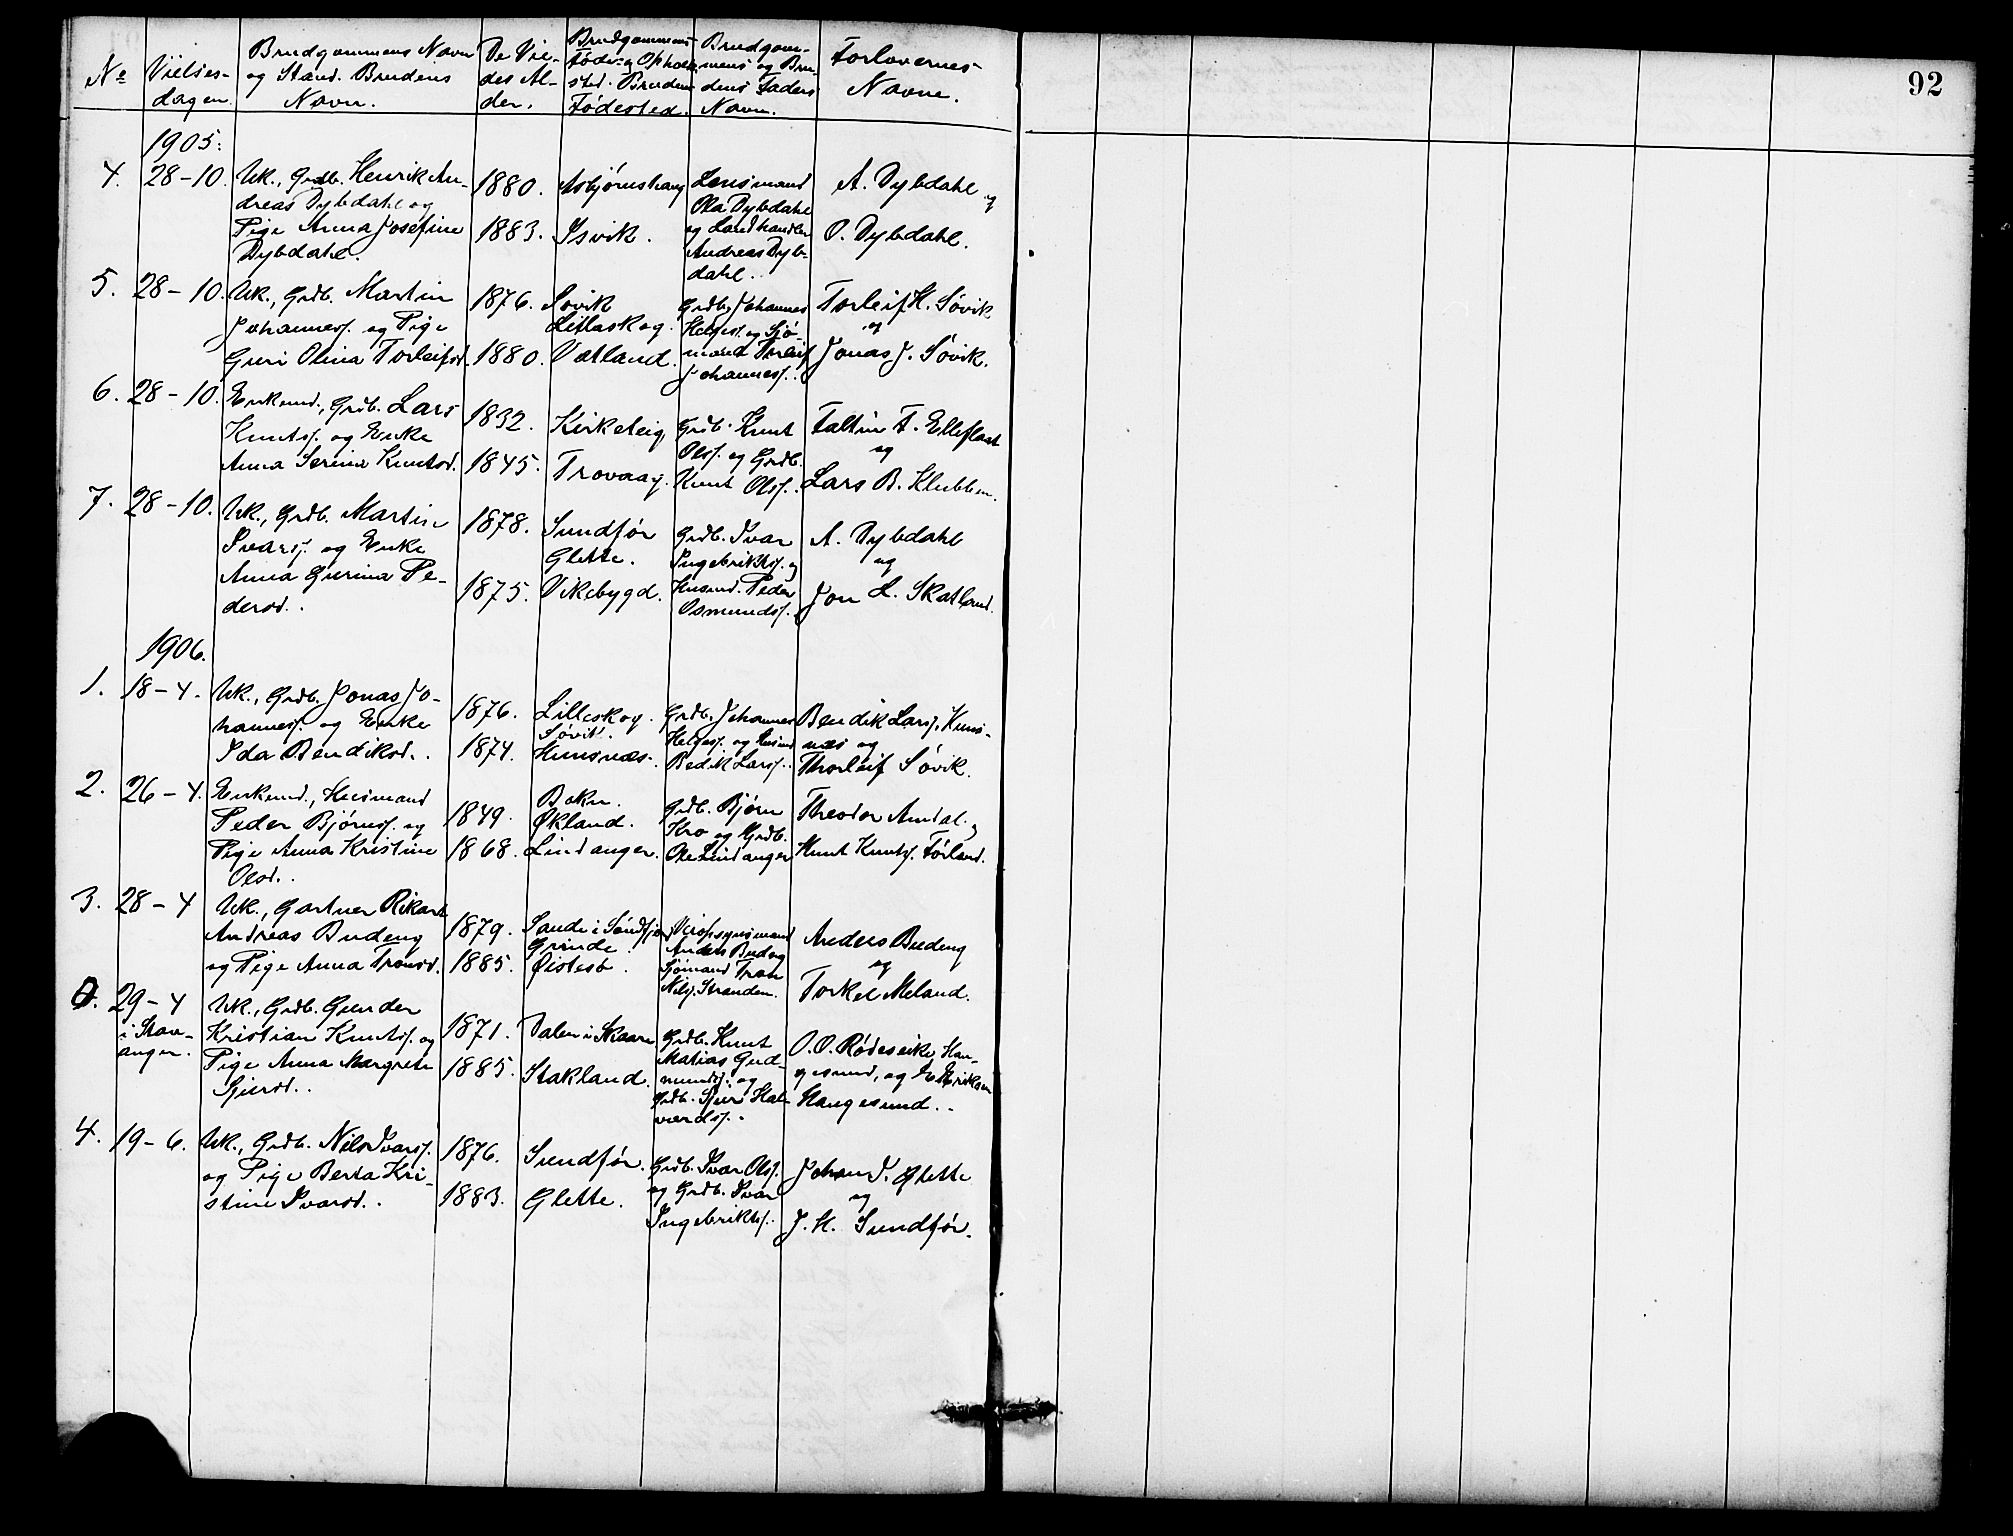 92
No
Vielses-
dagen.
Brudgommens Navn
og Stand. Brudens
Navn.
De Vie-
des Al-
der.
Brudgommens
Føde- og Opholds-
sted. Brudens
Fødested.
Brudgom-
mens og Bru-
dens Faders
Navn.
Forlovernes
Navne.
1905:
4. 28-10.
Uk., Grdb. Henrik An-
dreas Dybdahl og
Pige Anna Josefine
Dybdahl.
1880.
1883.
Asbjørnshaug
Isvik.
Lensmand
Ola Dybdahl
og Landhandler
Andreas Dyb-
dahl.
A. Dybdahl og
O. Dybdahl.
5. 28-10.
Uk., Grdb. Martin
Johanness. og Pige
Guri Olina Torleifsd.
1876.
1880.
Søvik
Litlaskog.
Vatland.
Grdb. Johannes
Helges. og Sjø-
mand Torleif
Johanness.
Torleif H. Søvik
og
Jonas J. Søvik.
6. 28-10.
Enkemd., Grdb. Lars
Knuts. og Enke
Anna Serina Knutsd.
1832.
1845.
Kirketeig,
Trovaag.
Grdb. Knut
Ols. og Grdb.
Knut Ols.
Faltin F. Elleflaat
og
Lars B. Klubben.
7. 28-10.
Uk., Grdb. Martin
Ivars. og Enke
Anna Gurina Pe-
dersd.
1878.
1875.
Sundfør
Glette.
Vikebygd.
Grdb. Ivar
Ingebrikts. og
Husmd. Peder
Osmunds.
A. Dybdahl
og
Jon L. Skatland.
1906.
1. 18-4.
Uk., Grdb. Jonas Jo-
hanness. og Enke
Ida Bendiksd.
1876.
1874.
Lilleskog.
Søvik.
Hunsnæs.
Grdb. Johannes
Helges. og Husmd
Bedik Lars.
Bendik Lars. Huns-
næs og
Thorleif Søvik.
2. 26-4.
Enkemd., Husmand
Peder Bjørns. og
Pige Anna Kristine
Olsd.
1849.
1868.
Bokn.
Økland.
Lindanger.
Grdb. Bjørn
Kro og Grdb.
Ole Lindanger
Theodor Amdal og
Knut Knuts. Førland.
3. 28-4
Uk., Gartner Rikard
Andreas Budeng
og Pige Anna Tronsd.
1879.
1885.
Sande i Søndfjord
Grinde.
Øistesø.
Veiopsynsmand
Anders Bud og
Sjømand Tron
Nils. Stranden.
Anders Budeng
og
Torkel Meland.
0. 29-4
i Stav-
anger.
Uk., Grdb. Gunder
Kristian Knuts. og
Pige Anna Margrete
Sjursd.
1871.
1885.
Dalen i Skaare
Stakland.
Grdb. Knut
Matias Gud-
munds. og
Grdb. Sjur Hal-
vards.
O. O. Rødeseike, Hau-
gesund, og E. Eriksen
Haugesund.
4. 19-6.
Uk., Grdb. Nils Ivars.
og Pige Berta Kri-
stine Ivarsd.
1876.
1883.
Sundfør.
Glette.
Grdb. Ivar Ols.
og Grdb. Ivar
Ingebrikts.
Johan I. Glette
og
J. H. Sundfør.